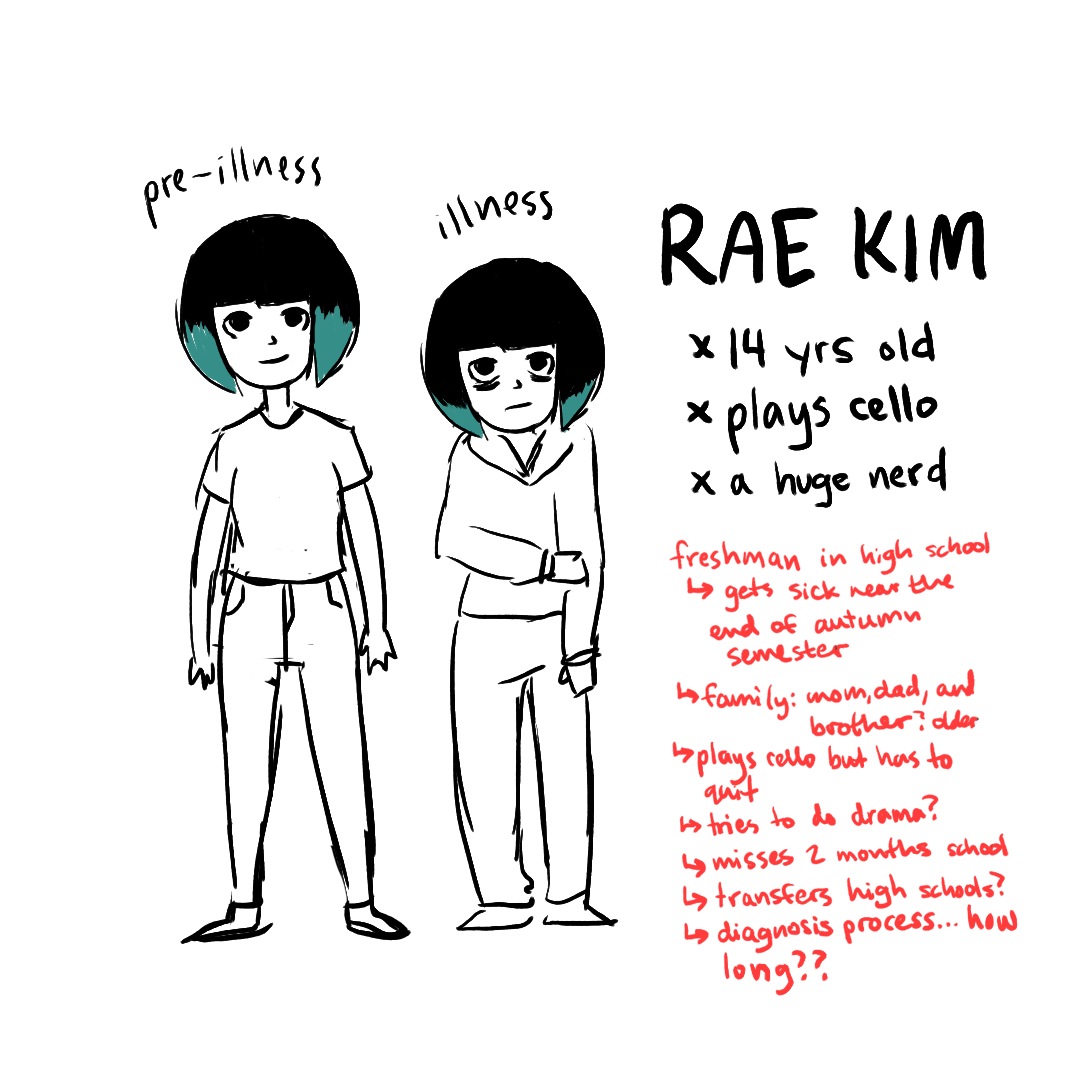 pre-illness
illness
RAE KIM
x 14 yrs old
x plays cello
x a huge nerd
freshman in high school
↳ gets sick near the
end of autumn
semester
↳ family: mom, dad, and
brother? older
↳ plays cello but has to
quit
↳ tries to do drama?
↳ misses 2 months school
↳ transfers high schools?
↳ diagnosis process... how
long??